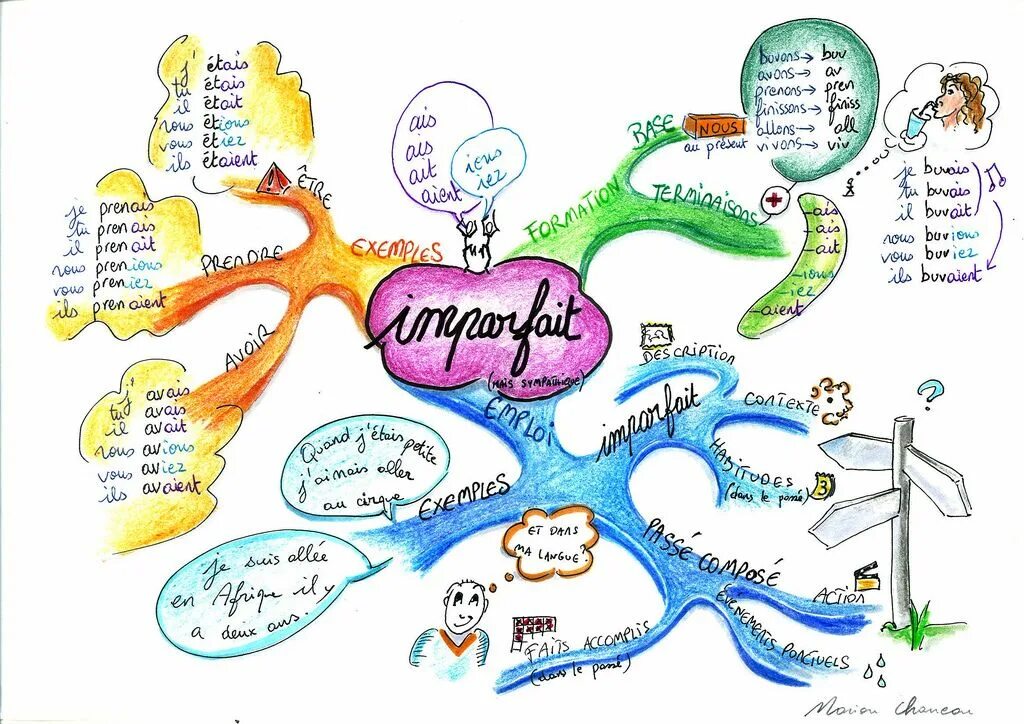 imparfait
(MAIS SYMPATHIQUE)
EXEMPLES
ÊTRE
j' étais
tu étais
il était
nous étions
vous étiez
ils étaient
PRENDRE
je prenais
tu prenais
il prenait
nous prenions
vous preniez
ils prenaient
AVOIR
j' avais
tu avais
il avait
nous avions
vous aviez
ils avaient
ais
ais
ait
aient
iens
iez
FORMATION
BASE
NOUS
au présent
buvons→ buv
avons→ av
prenons→ pren
finissons→ finiss
allons→ all
vivons→ viv
TERMINAISONS
-ais
-ais
-ait
-ions
-iez
-aient
je buvais
tu buvais
il buvait
nous buvions
vous buviez
ils buvaient
EMPLOI
imparfait
DESCRIPTION
CONTEXTE
HABITUDES
(dans le passé)
3
?
PASSÉ COMPOSÉ
ACTION
ÉVÉNEMENTS PONCTUELS
FAITS ACCOMPLIS
(dans le passé)
EXEMPLES
Quand j'étais petite
j'aimais aller
au cirque
je suis allée
en Afrique il y
a deux ans.
ET DANS
MA LANGUE?
Marion Charreau